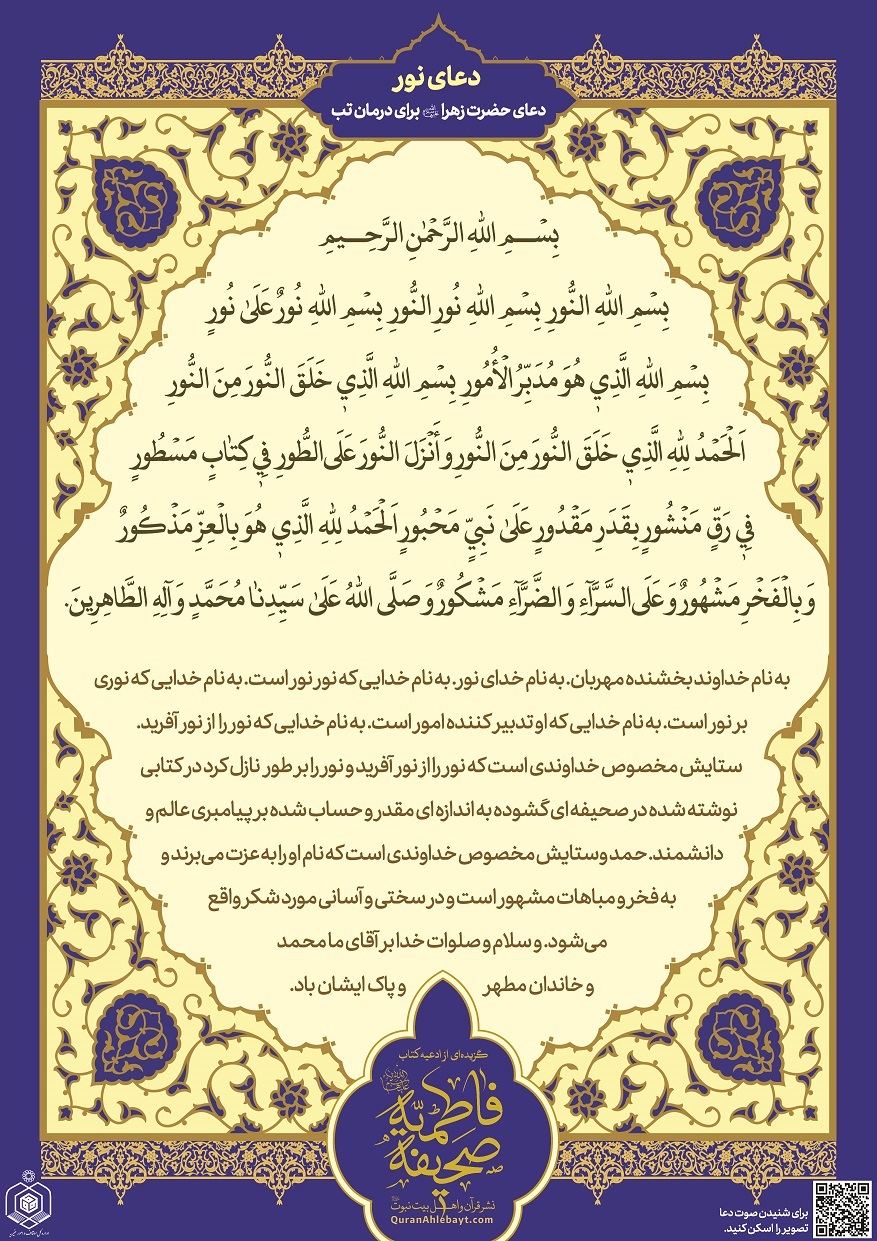 دعای نور
دعای حضرت زهرا برای درمان تب
بِسْـــمِ اللهِ الرَّحْمٰنِ الرَّحِـــیمِ
بِسْمِ اللهِ النُّورِ بِسْمِ اللهِ نُورِ النُّورِ بِسْمِ اللهِ نُورٌ عَلَىٰ نُورٍ
بِسْمِ اللهِ الَّذِي هُوَ مُدَبِّرُ الْأُمُورِ بِسْمِ اللهِ الَّذِي خَلَقَ النُّورَ مِنَ النُّورِ
اَلْحَمْدُ لِلهِ الَّذِي خَلَقَ النُّورَ مِنَ النُّورِ وَ أَنْزَلَ النُّورَ عَلَى الطُّورِ فِي كِتَابٍ مَسْطُورٍ
فِي رَقٍّ مَنْشُورٍ بِقَدَرِ مَقْدُورٍ عَلَىٰ نَبِيٍّ مَحْبُورٍ اَلْحَمْدُ لِلهِ الَّذِي هُوَ بِالْعِزِّ مَذْكُورٌ
وَ بِالْفَخْرِ مَشْهُورٌ وَ عَلَى السَّرَّآءِ وَ الضَّرَّآءِ مَشْكُورٌ وَ صَلَّى اللهُ عَلَىٰ سَيِّدِنٰا مُحَمَّدٍ وَ آلِهِ الطَّاهِرِينَ.
به نام خداوند بخشنده مهربان. به نام خدای نور. به نام خدایی که نور نور است. به نام خدایی که نوری
بر نور است. به نام خدایی که او تدبیر کننده امور است. به نام خدایی که نور را از نور آفرید.
ستایش مخصوص خداوندی است که نور را از نور آفرید و نور را بر طور نازل کرد در کتابی
نوشته شده در صحیفه ای گشوده به اندازه ای مقدر و حساب شده بر پیامبری عالم و
دانشمند. حمد و ستایش مخصوص خداوندی است که نام او را به عزت می‌برند و
به فخر و مباهات مشهور است و در سختی و آسانی مورد شکر واقع
می‌شود. و سلام و صلوات خدا بر آقای ما محمد
و خاندان مطهر و پاک ایشان باد.
گزیده‌ای از ادعیه کتاب
صحیفه
فاطمیه
نشر قرآن و اهل بیت نبوت
QuranAhlebayt.com
برای شنیدن صوت دعا
تصویر را اسکن کنید.